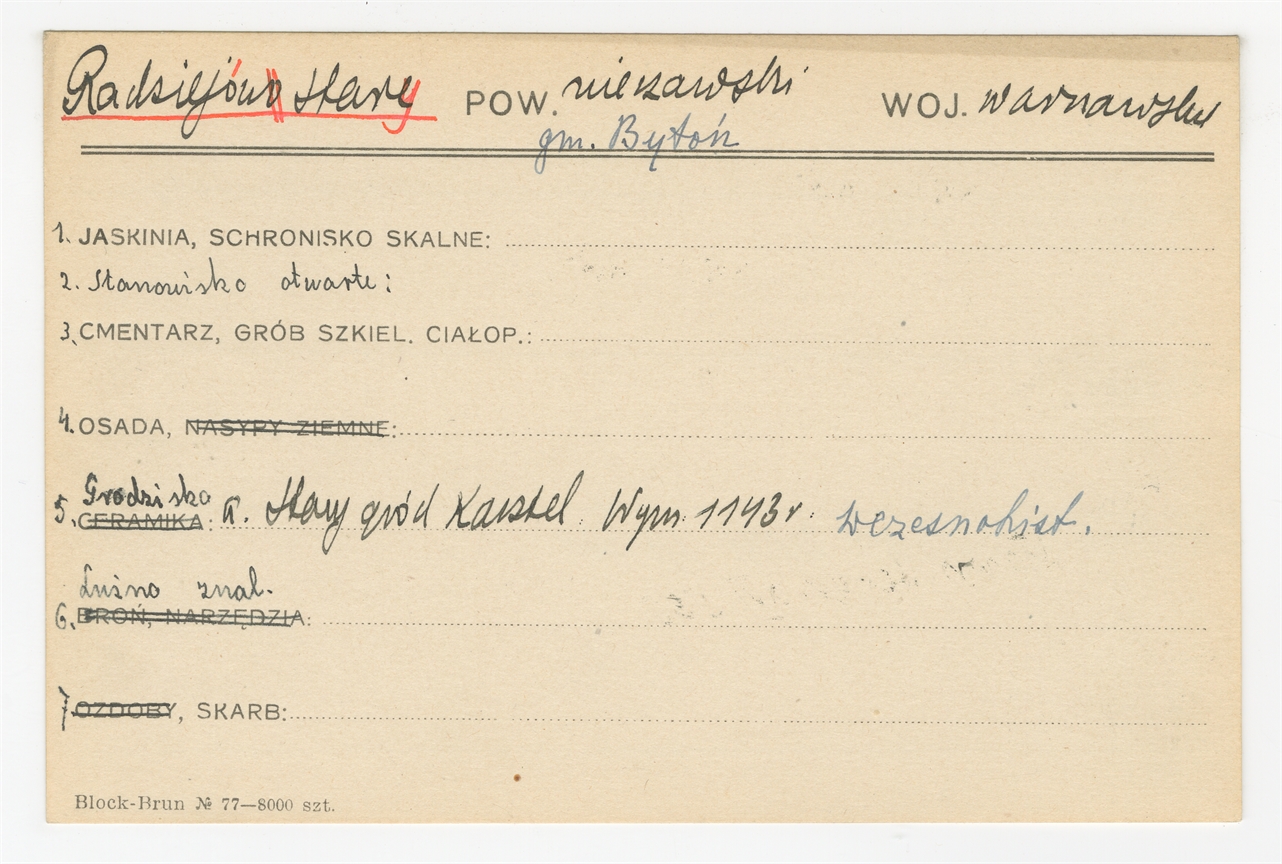 Radziejów Stary POW. nieszawski WOJ. warszawskie
gm. Bytoń
1. JASKINIA, SCHRONISKO SKALNE:
2. Stanowisko otwarte:
3. CMENTARZ, GRÓB SZKIEL. CIAŁOP.:
4. OSADA, NASYPY ZIEMNE:
Grodzisko
5. CERAMIKA: a. Stary gród Kasztel. Wym. 1143 r. wczesnohist.
Luźno znal.
6. BROŃ, NARZĘDZIA:
7. OZDOBY, SKARB:
Block-Brun № 77—8000 szt.